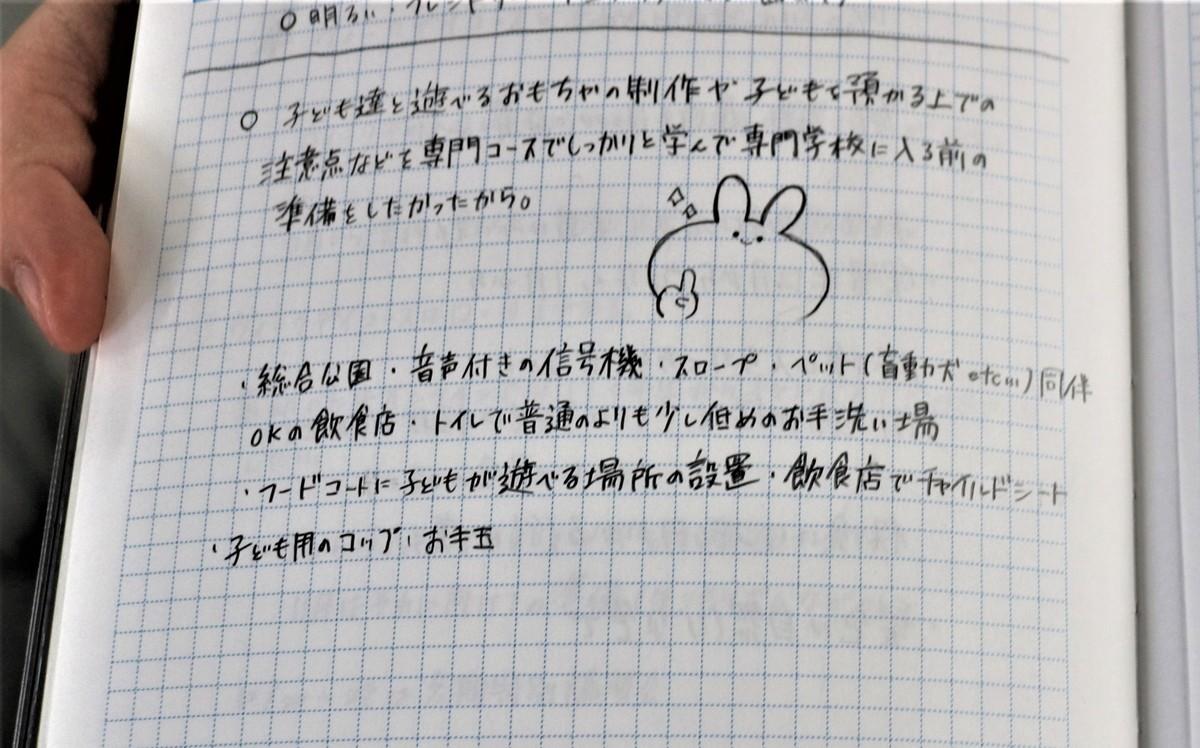 ○ 明るい・フレンドリー
○ 子ども達と遊べるおもちゃの制作や子どもを預かる上での
注意点などを専門コースでしっかりと学んで専門学校に入る前の
準備をしたかったから。
・総合公園・音声付きの信号機・スロープ・ペット(盲動犬etc...)同伴
OKの飲食店・トイレで普通のよりも少し低めのお手洗い場
・フードコートに子どもが遊べる場所の設置・飲食店でチャイルドシート
・子ども用のコップ・お手玉